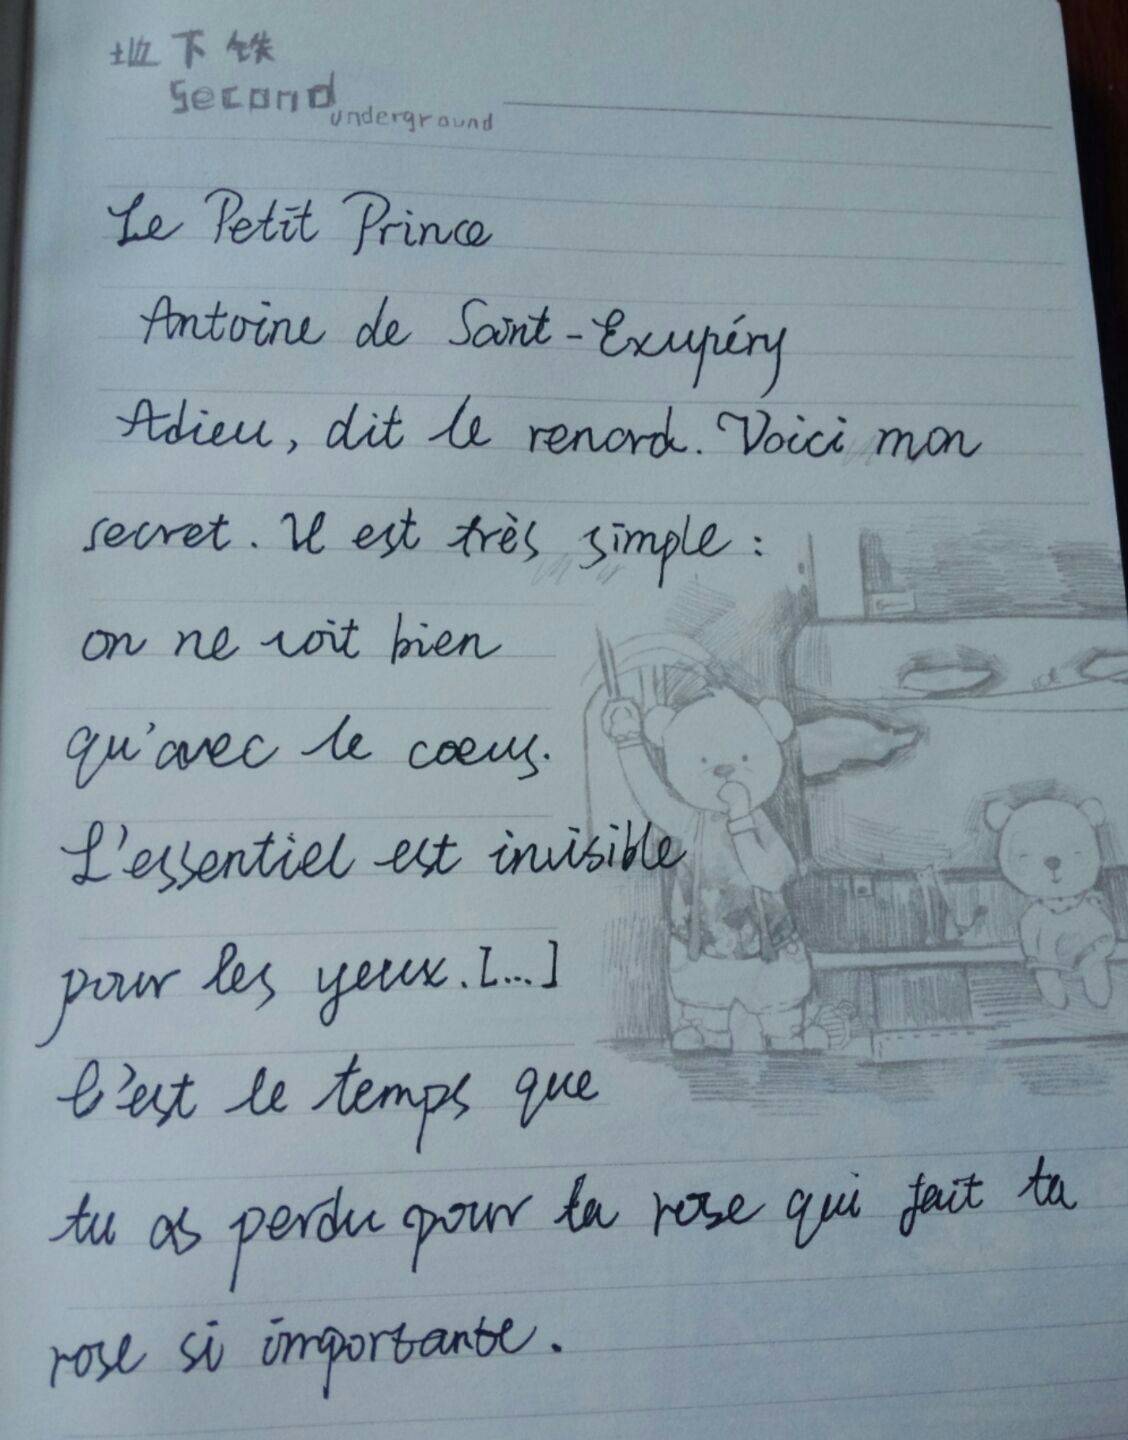 地下铁
second
underground
Le Petit Prince
Antoine de Saint-Exupéry
Adieu, dit le renard. Voici mon
secret. Il est très simple :
on ne voit bien
qu'avec le coeur.
L'essentiel est invisible
pour les yeux. [...]
C'est le temps que
tu as perdu pour ta rose qui fait ta
rose si importante.